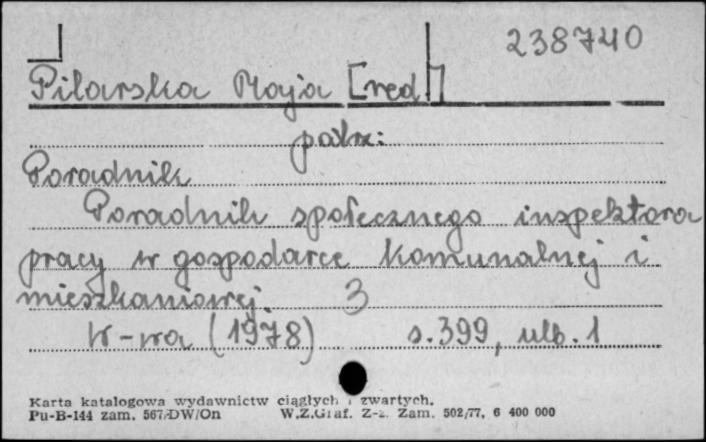 238740
Pilarska Maja [red.]
patrz:
Poradnik
Poradnik społecznego inspektora
pracy w gospodarce komunalnej i
mieszkaniowej. 3
W-wa (1978) s. 399, ulb. 1
Karta katalogowa wydawnictw ciągłych i zwartych.
Pu-B-144 zam. 567/DW/On W.Z.Graf. Z-z. Zam. 502/77, 6 400 000